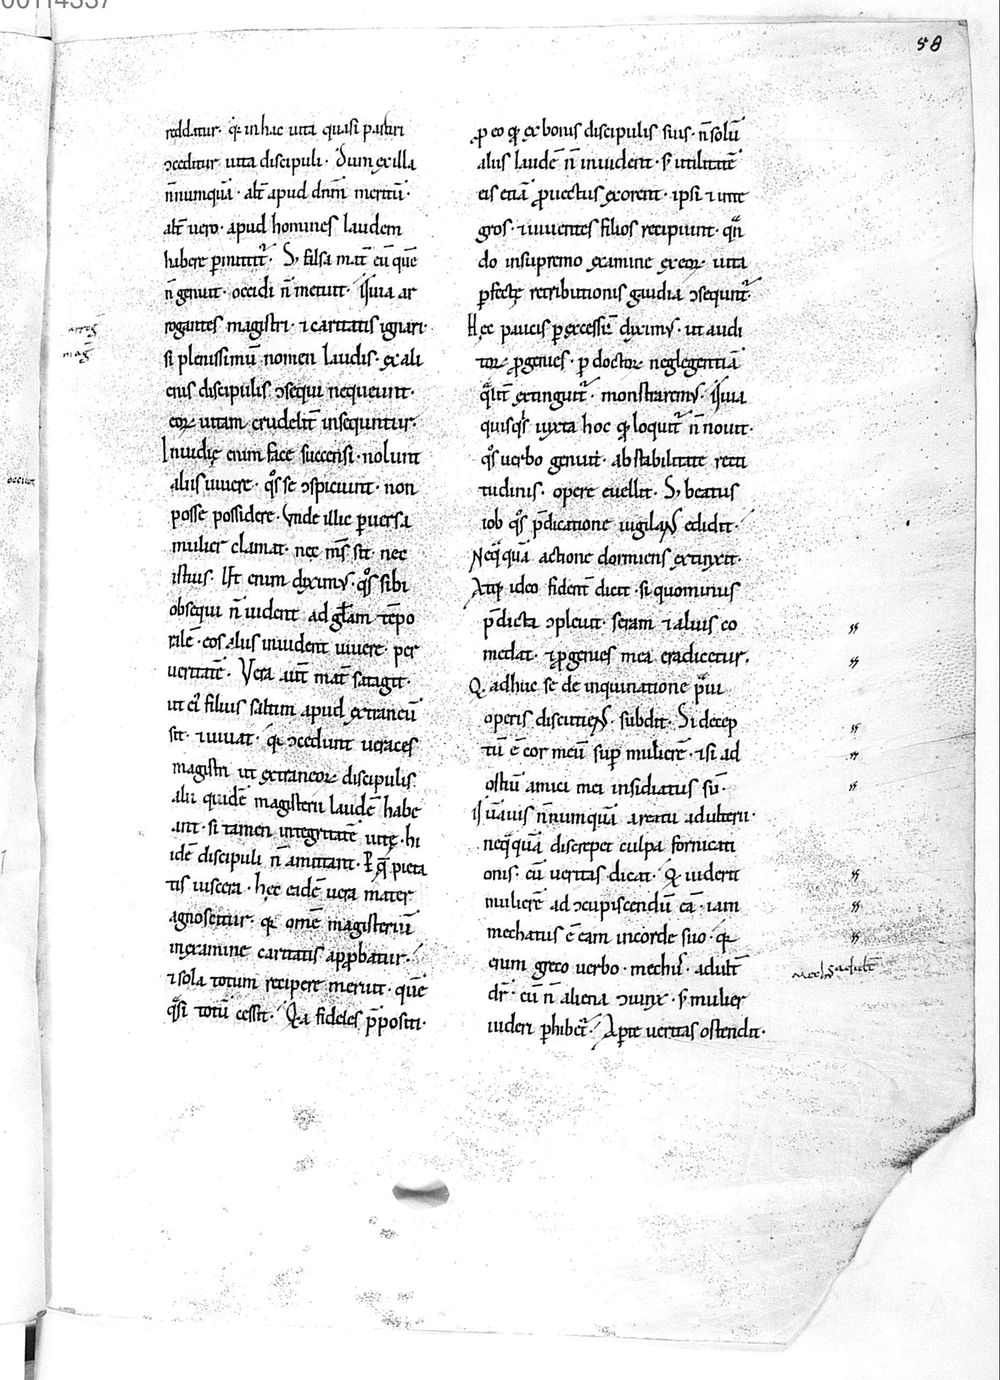 58
reddatur · q̇r in hac uita quasi pastori
ɔceditur uita discipuli · Dum ex illa
n̄numquā · alt̄ apud dn̄m meritū ·
alt̄ uero · apud homines laudem
habere p̄mittit᷑ · S; falsa mat̄ cū quē
n̄ genuit · occidi n̄ metuit · Isꝗuia ar
rogantes magistri · ⁊ caritatis ignari ·
arrog̅
mag̅
si plenissimū nomen laudis · ex ali
enis discipulis ɔsequi nequeunt ·
eoꝝ uitam crudelit̄ insequuntur ·
Inuidie enim face succensi · nolunt
aliis uiuere · q̊s se ɔspiciunt · non
posse possidere · Vnde illic ꝑuersa
mulier clamat · nec m̄s sit · nec
istius · Ut enim diximꝰ · q̊s sibi
obsequi n̄ uident ad gl̄am tēpo
ralē · eos aliis inuident uiuere · per
ueritatē · Vera aut̄ mat̄ satagit ·
ut ei filius saltim apud extraneū
sit · ⁊ uiuat · q̇r ɔcedunt ueraces
magistri ut ex extraneoꝝ discipulis
alii quidē magisterii laudē habe
ant · si tamen integritatē uitę · hi
idē discipuli n̄ amittant · P̱ q̄ pieta
tis uiscera · hęc eadē uera mater
agnoscitur · q̇r om̄e magisteriū
in examine caritatis apꝓbatur ·
⁊ sola totum recipere meruit · quē
q̇si totū cessit · Q̇a fideles p̄positi ·
ꝓ eo qđ ex bonis discipulis suis · n̄ solū
aliis laudē n̄ inuident · s; utilitatē
eis etiā ꝓuectus exorent · ipsi ⁊ inte
gros · ⁊ uiuentes filios recipiunt · qn̄
do in supremo examine ex eoꝝ uita
ꝑfecte retributionis gaudia ɔsequunt᷑ ·
Hęc paucis ꝑ excessū diximꝰ · ut audi
toꝝ ꝓgenies · ꝑ doctoꝝ neglegentiā
q̇lit̄ extinguit᷑ · monstraremꝰ · Isꝗuia
quisq̇s iuxta hoc qđ loquit᷑ n̄ uiuit ·
q̊s uerbo genuit · ab stabilitate recti
tudinis · opere euellit · S; beatus
iob q̊s p̄dicatione uigilans edidit ·
Neq̇quā actione dormiens extinxit ·
Atq; ideo fident̄ dicit · si quominus
p̄dicta ɔpleuit · seram ⁊ alius co
medat · ⁊ ꝓgenies mea eradicetur ·
Q · adhuc se de inquinatione p̄ui
operis discutiens · subdit · Si decep
tū ē cor meū sup̄ mulierē · ⁊ si ad
ostiū amici mei insidiatus sū ·
n̄numquā a reatu adulterii ·
neq̇quā discrepet culpa fornicati
onis · cū ueritas dicat · Q̇ uiderit
mulierē ad ɔcupiscendū eā · iam
mechatus ē eam in corde suo · q̇r
enim greco uerbo · mechꝰ · adult̄
mechꝰ adult̄
dr̄ · cū n̄ aliena ɔiunx · s; mulier
uideri ꝓhibet᷑ · Aꝑte ueritas ostendit ·